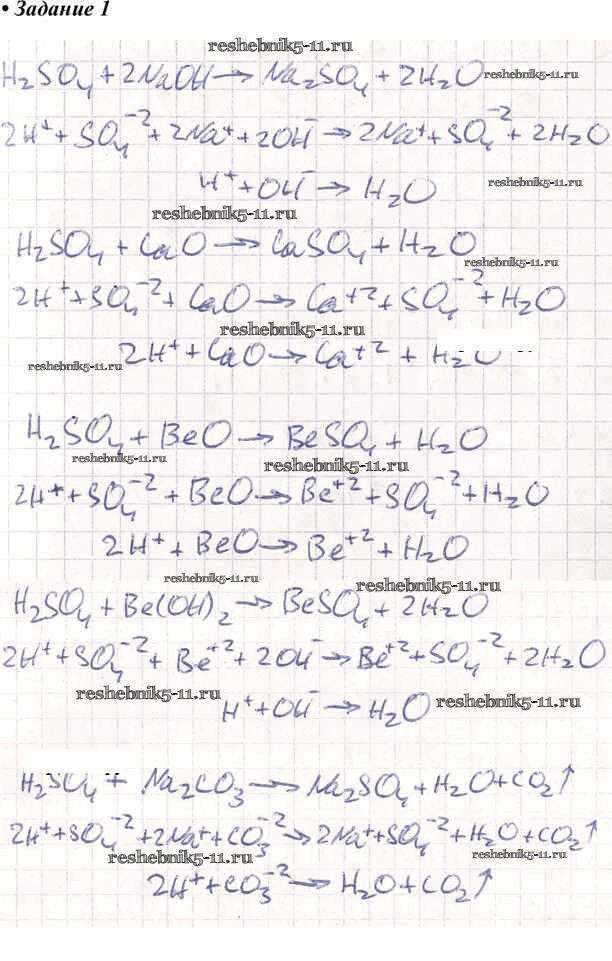 • Задание 1
reshebnik5-11.ru
H₂SO₄ + 2NaOH → Na₂SO₄ + 2H₂O reshebnik5-11.ru
2H⁺ + SO₄⁻² + 2Na⁺ + 2OH⁻ → 2Na⁺ + SO₄⁻² + 2H₂O
H⁺ + OH⁻ → H₂O reshebnik5-11.ru
reshebnik5-11.ru
H₂SO₄ + CaO → CaSO₄ + H₂O
reshebnik5-11.ru
2H⁺ + SO₄⁻² + CaO → Ca⁺² + SO₄⁻² + H₂O
reshebnik5-11.ru
2H⁺ + CaO → Ca⁺² + H₂O
reshebnik5-11.ru
H₂SO₄ + BeO → BeSO₄ + H₂O
reshebnik5-11.ru reshebnik5-11.ru
2H⁺ + SO₄⁻² + BeO → Be⁺² + SO₄⁻² + H₂O
2H⁺ + BeO → Be⁺² + H₂O
reshebnik5-11.ru reshebnik5-11.ru
H₂SO₄ + Be(OH)₂ → BeSO₄ + 2H₂O
2H⁺ + SO₄⁻² + Be⁺² + 2OH⁻ → Be⁺² + SO₄⁻² + 2H₂O
reshebnik5-11.ru reshebnik5-11.ru
H⁺ + OH⁻ → H₂O
H₂SO₄ + Na₂CO₃ → Na₂SO₄ + H₂O + CO₂↑
2H⁺ + SO₄⁻² + 2Na⁺ + CO₃⁻² → 2Na⁺ + SO₄⁻² + H₂O + CO₂↑
reshebnik5-11.ru reshebnik5-11.ru
2H⁺ + CO₃⁻² → H₂O + CO₂↑